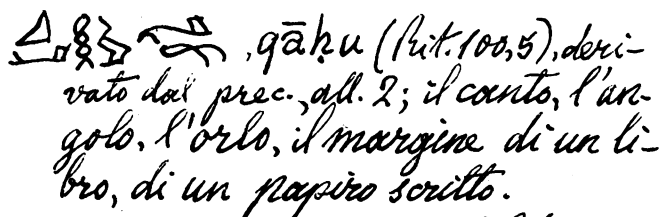 , qāḥu (Rit. 100,5), deri-
vato dal prec., all. 2; il canto, l'an-
golo, l'orlo, il margine di un li-
bro, di un papiro scritto.